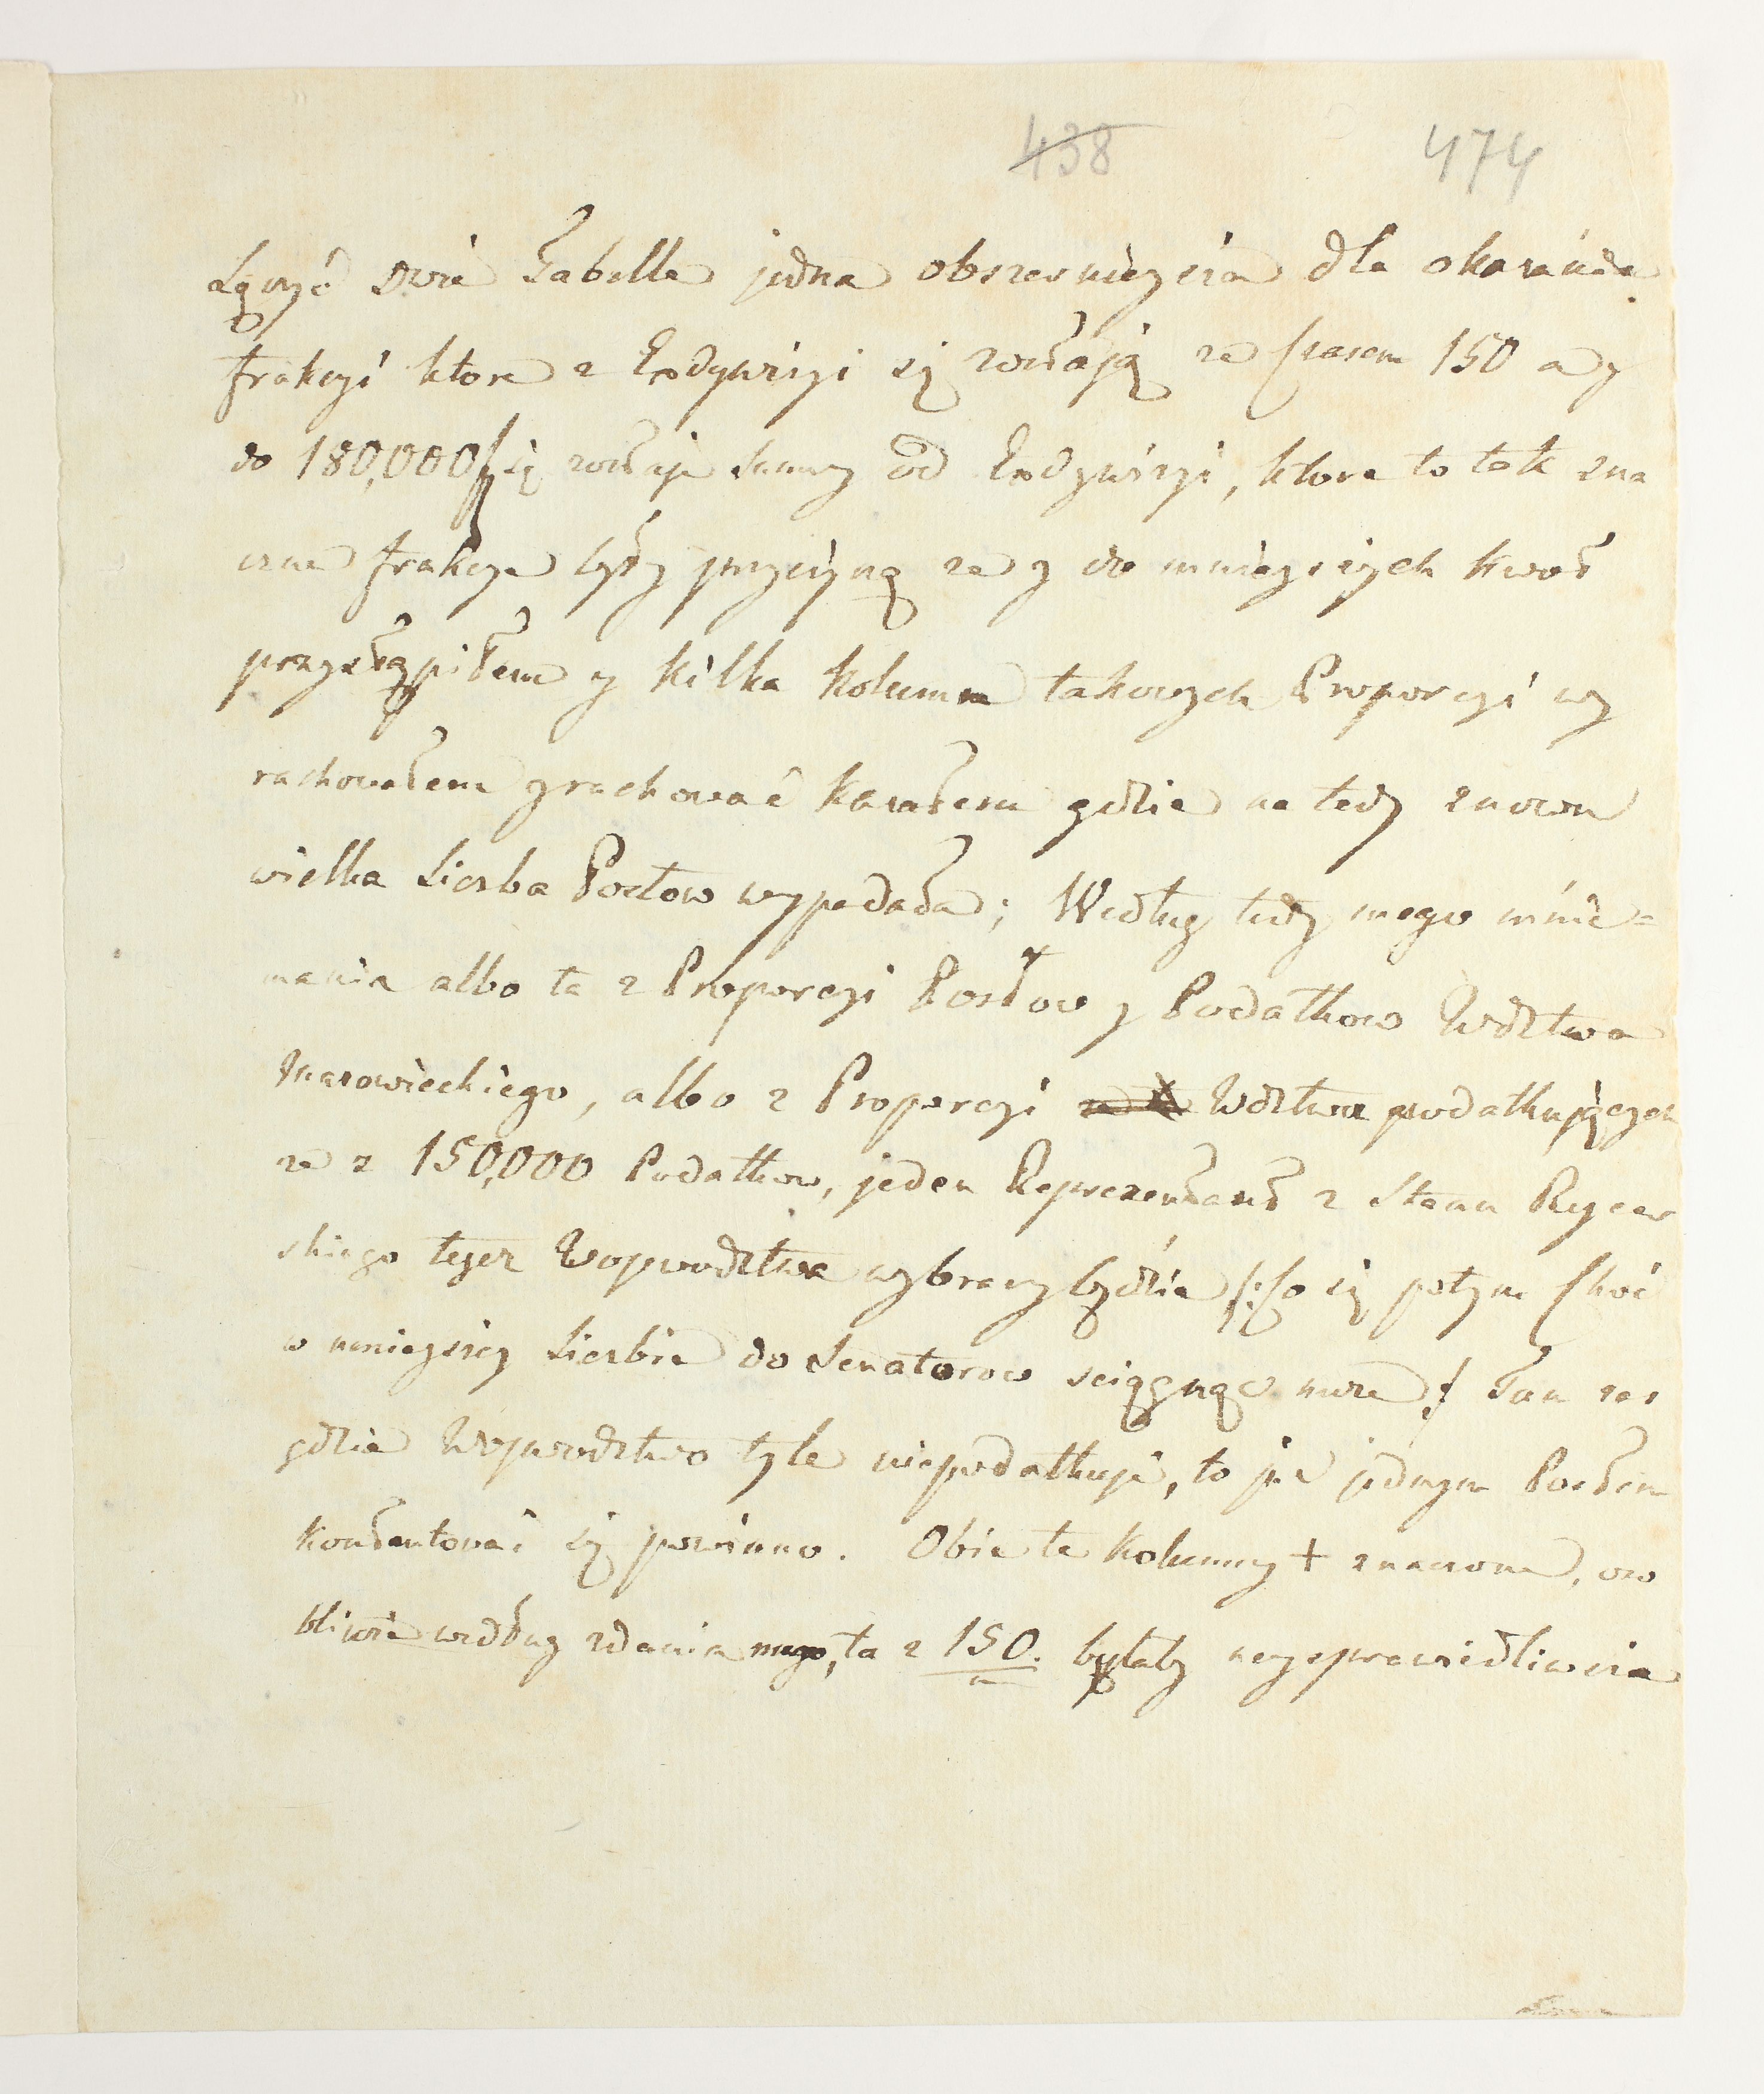 438 474
Łączyć dwie Tabelle jedna obszernieysza dla okazania
frakcyi ktore z Exdywizyi się zostają ze czasem 150 a y
do 180,000 się zostaje summy od Exdywizyi, ktore to tak zna
czne frakcye były przyczyną że y do mnieyszych kwot
przystąpiłem y kilka kolumn takowych Proporcyi wy
rachowałem y rachować kazałem gdzie na tedy znowu
wielka Liczba Posłow wypadała; Według tedy mego mnie=
mania albo ta z Proporcyi Posłow y Podatkow Wdztwa
Mazowieckiego, albo z Proporcyi Wdztwa podatkujących
że z 150,000 Podatkow, jeden Reprezentant z Stanu Rycer
skiego tegez Wojewodztwa wybrany będzie /:Co się potym choć
w mnieyszey Liczbie do Senatorow sciągnąć moze:/ Tam zas
gdzie Wojewodztwo tyle niepodatkuje, to już jednym Posłem
kontentować się powinno. Obie te Kolumny + znaczone, oso
bliwie według zdania mego, ta z 150. byłaby naysprawiedliwsza